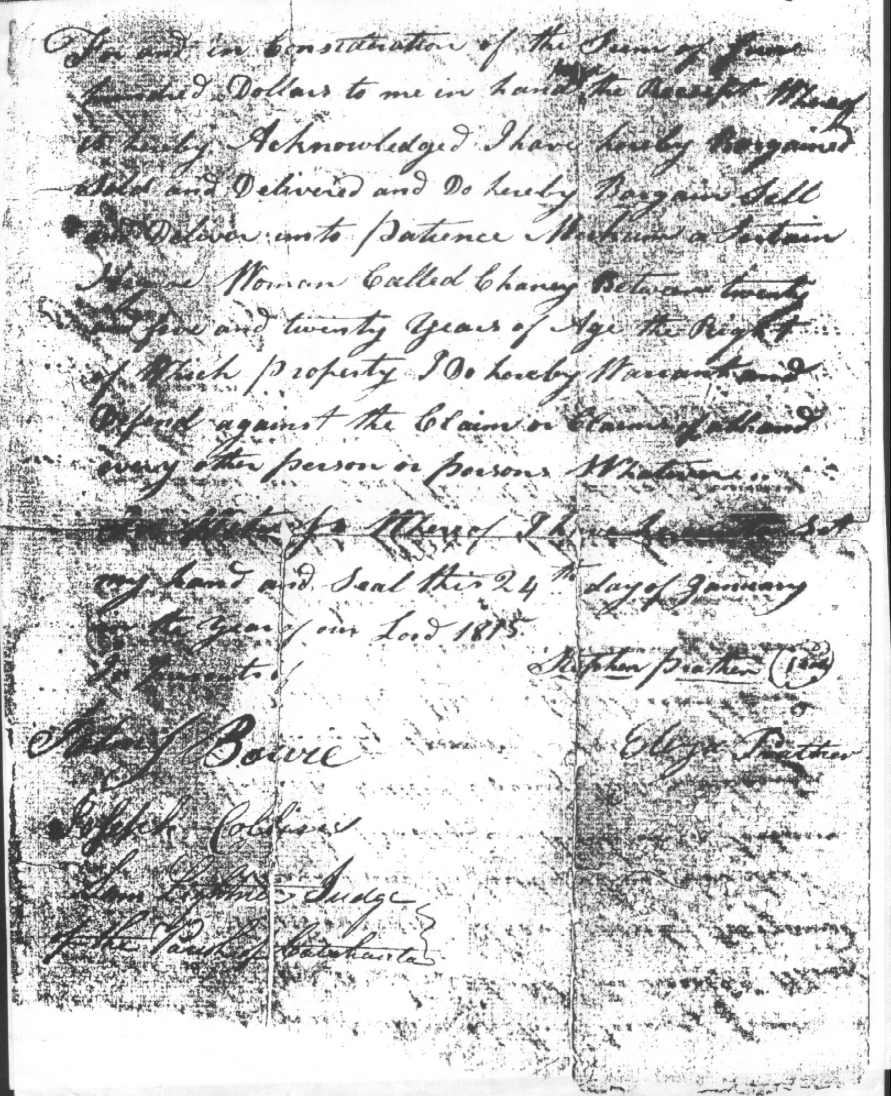 For and in Consideration of the Sum of
hundred Dollars to me in hand the Receipt Whereof
is hereby Acknowledged I have hereby Bargained
Sold and Delivered and Do hereby Bargain Sell
and Deliver unto patience a Certain
Negro Woman Called Chaney Between twenty
and five and twenty Years of Age the Right
of Which property I Do hereby Warrant and
Defend against the Claim or Claims of all and
every other person or persons Whatsoever
hereof I have Set
my hand and Seal this 24th day of January
in the Year of our Lord 1815
In presents of Stephen prather
Bowie Prather
Joseph Collins
Judge
of the Parish of Catahoula